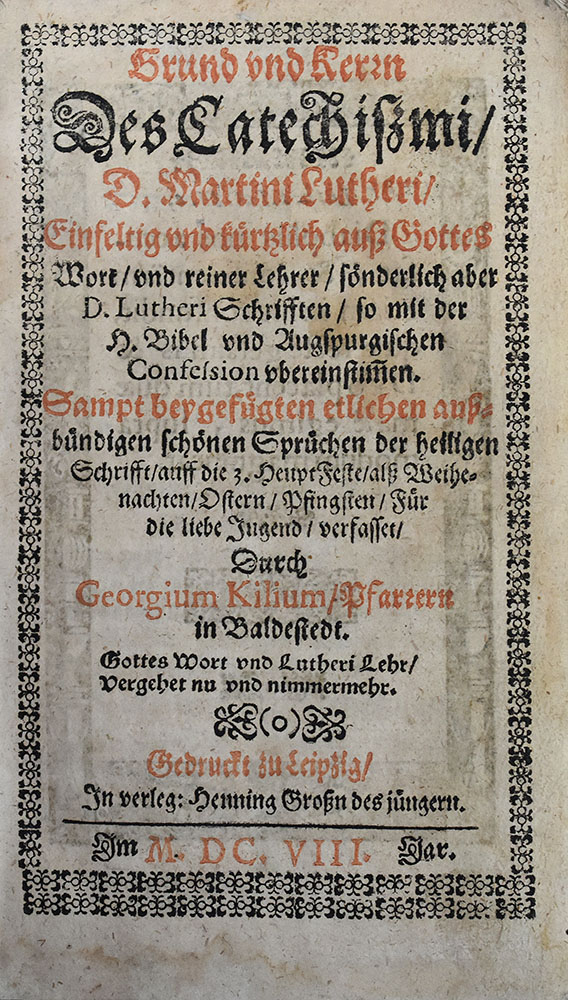 Grund vnd Kerrn
Des Catechißmi/
D. Martini Lutheri/
Einfeltig vnd kürtzlich auß Gottes
Wort/ vnd reiner Lehrer/ sönderlich aber
D. Lutheri Schrifften/ so mit der
H. Bibel vnd Augspurgischen
Confession vbereinstim̃en.
Sampt beygefügten etlichen auß-
bündigen schönen Sprüchen der heiligen
Schrifft/ auff die 3. Heupt Feste/ alß Weihe-
nachten/ Ostern/ Pfingsten/ Für
die liebe Jugend/ verfasset/
Durch
Georgium Kilium/ Pfarrern
in Baldestedt.
Gottes Wort vnd Lutheri Lehr/
Vergehet nu vnd nimmermehr.
(o)
Gedruckt zu Leipzig/
In verleg: Henning Großn des jüngern.
Im M. DC. VIII. Jar.